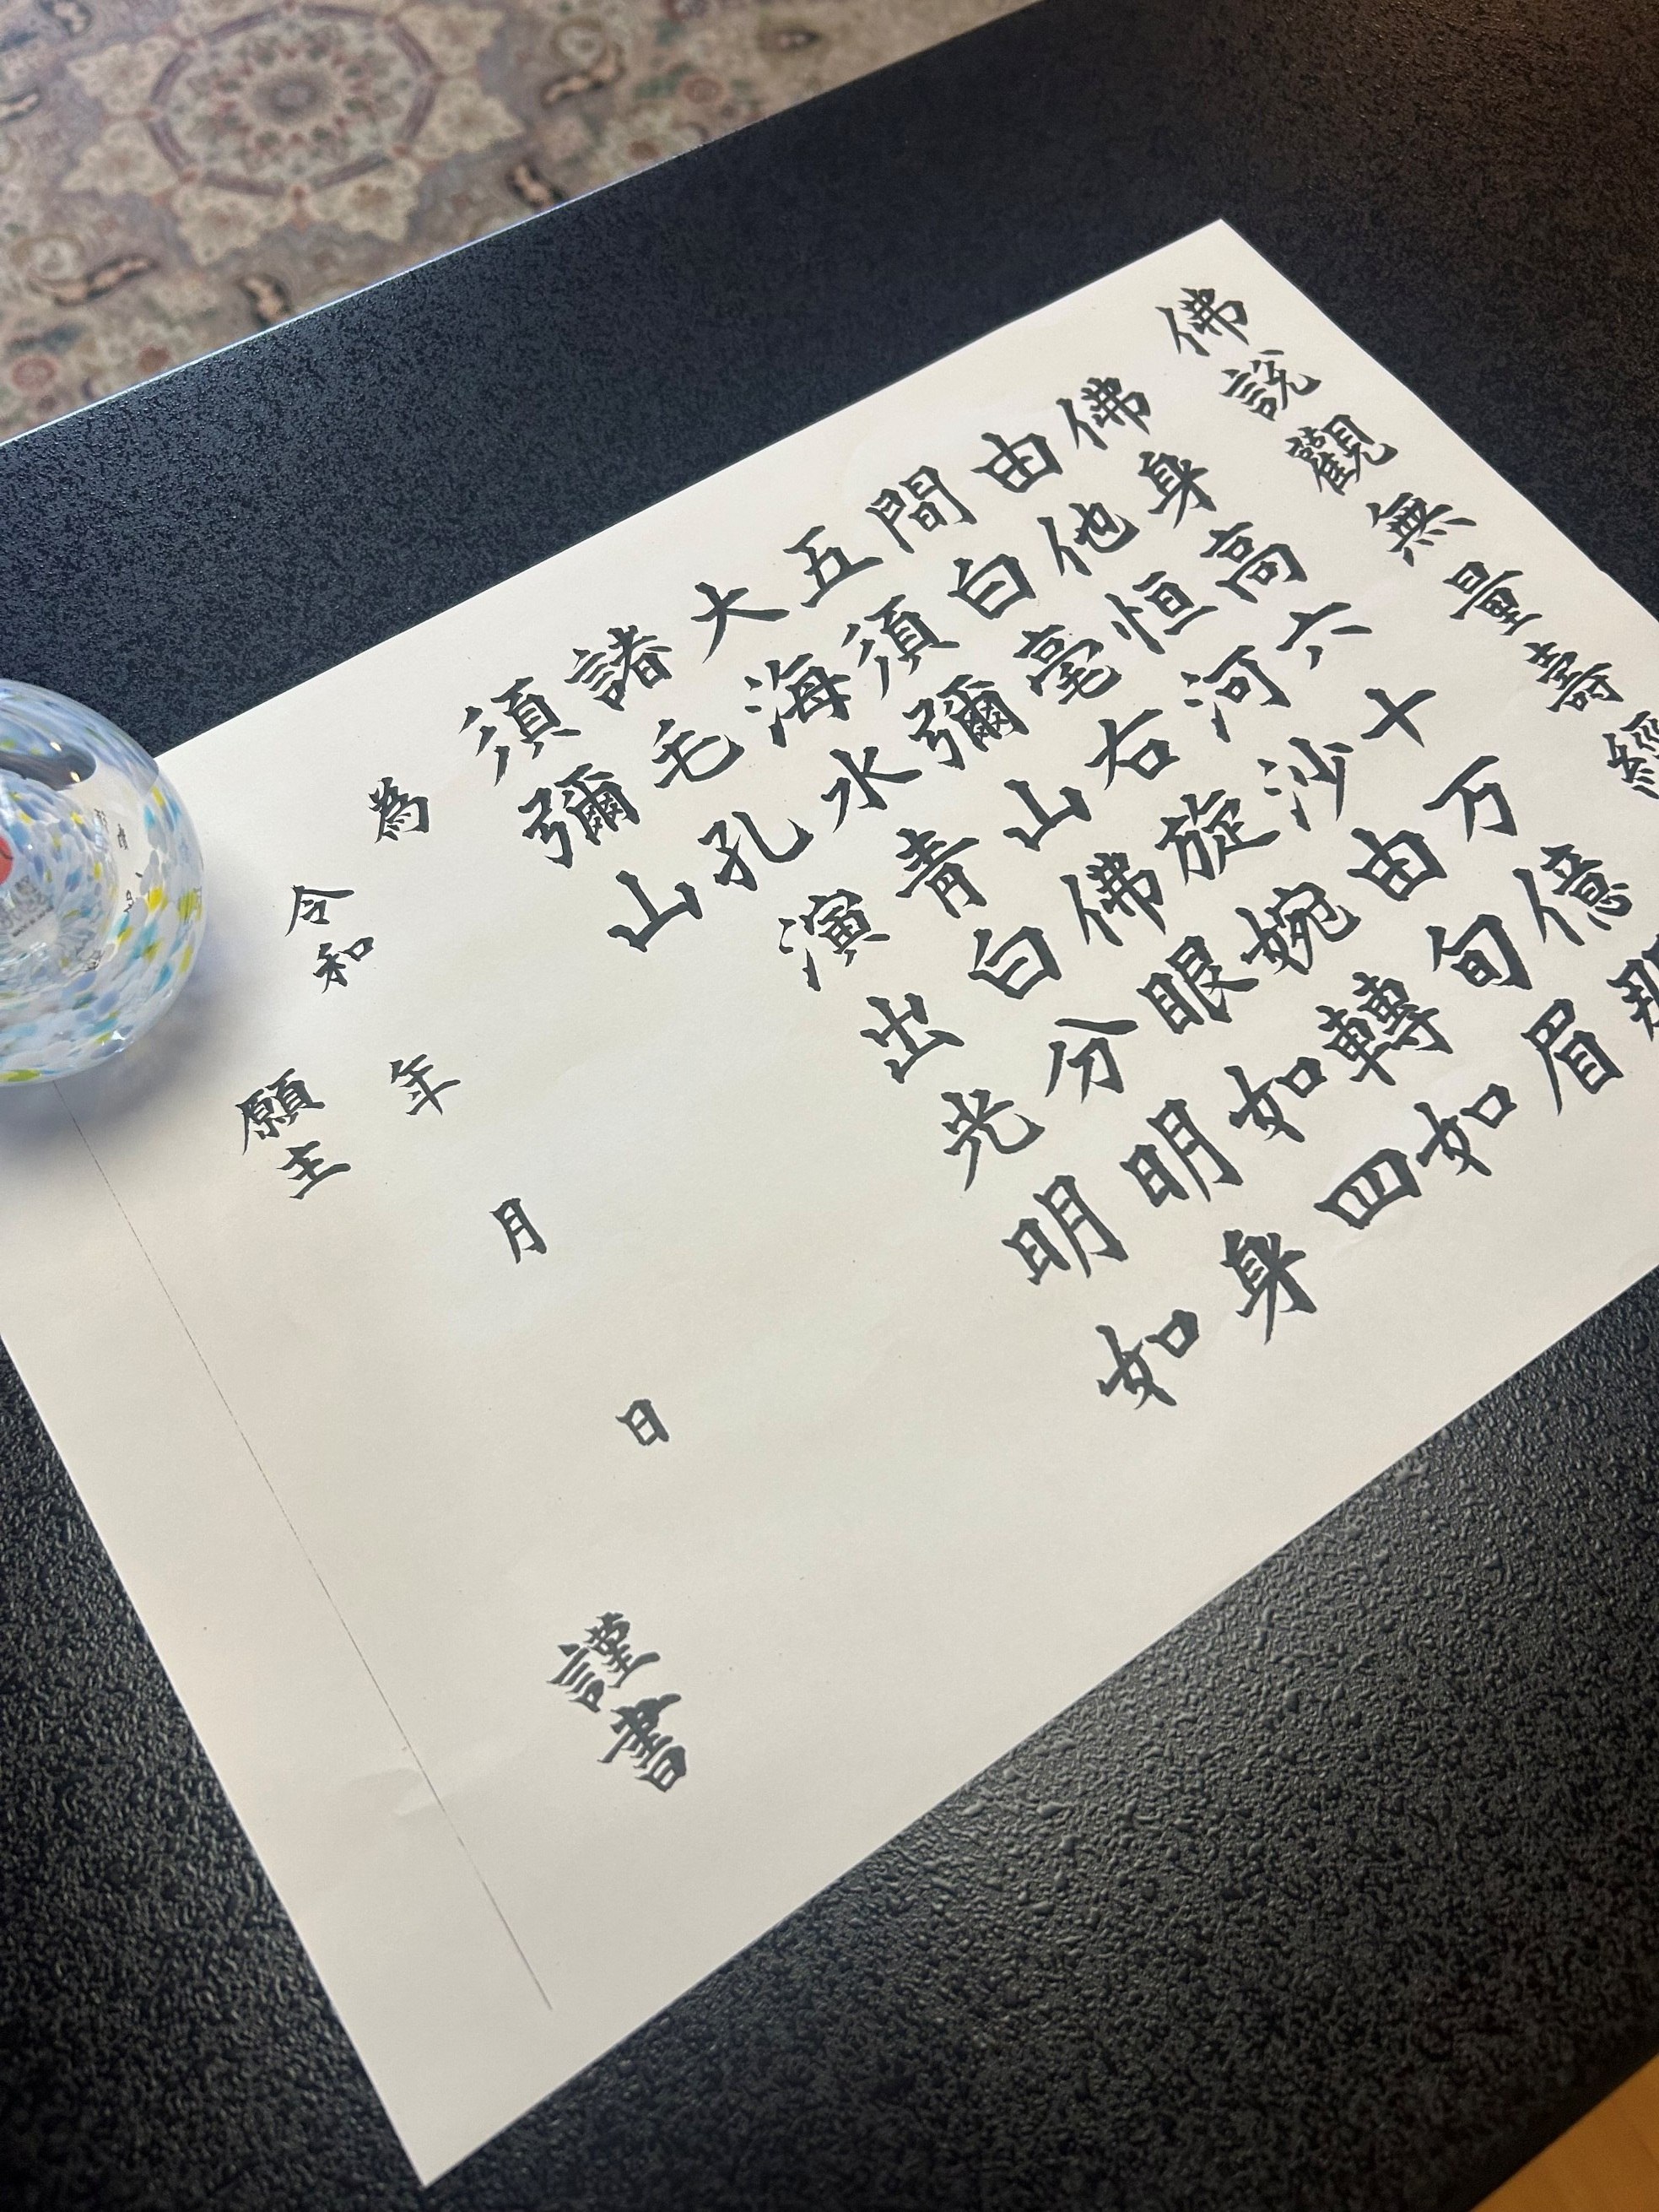 佛説觀無量壽經
佛身高六十万億那
由他恒河沙由旬眉
間白毫右旋婉轉如
五須彌山佛眼如四
大海水青白分明身
諸毛孔演出光明如
須彌山
為
令和 年 月 日
願主 謹書